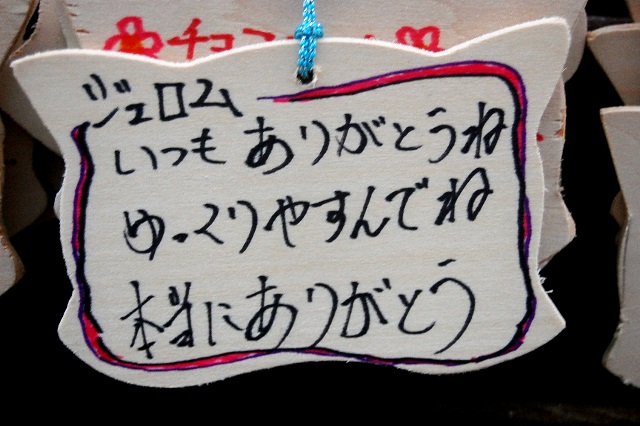 チョコ
ジェロム
いつもありがとうね
ゆっくりやすんでね
本当にありがとう